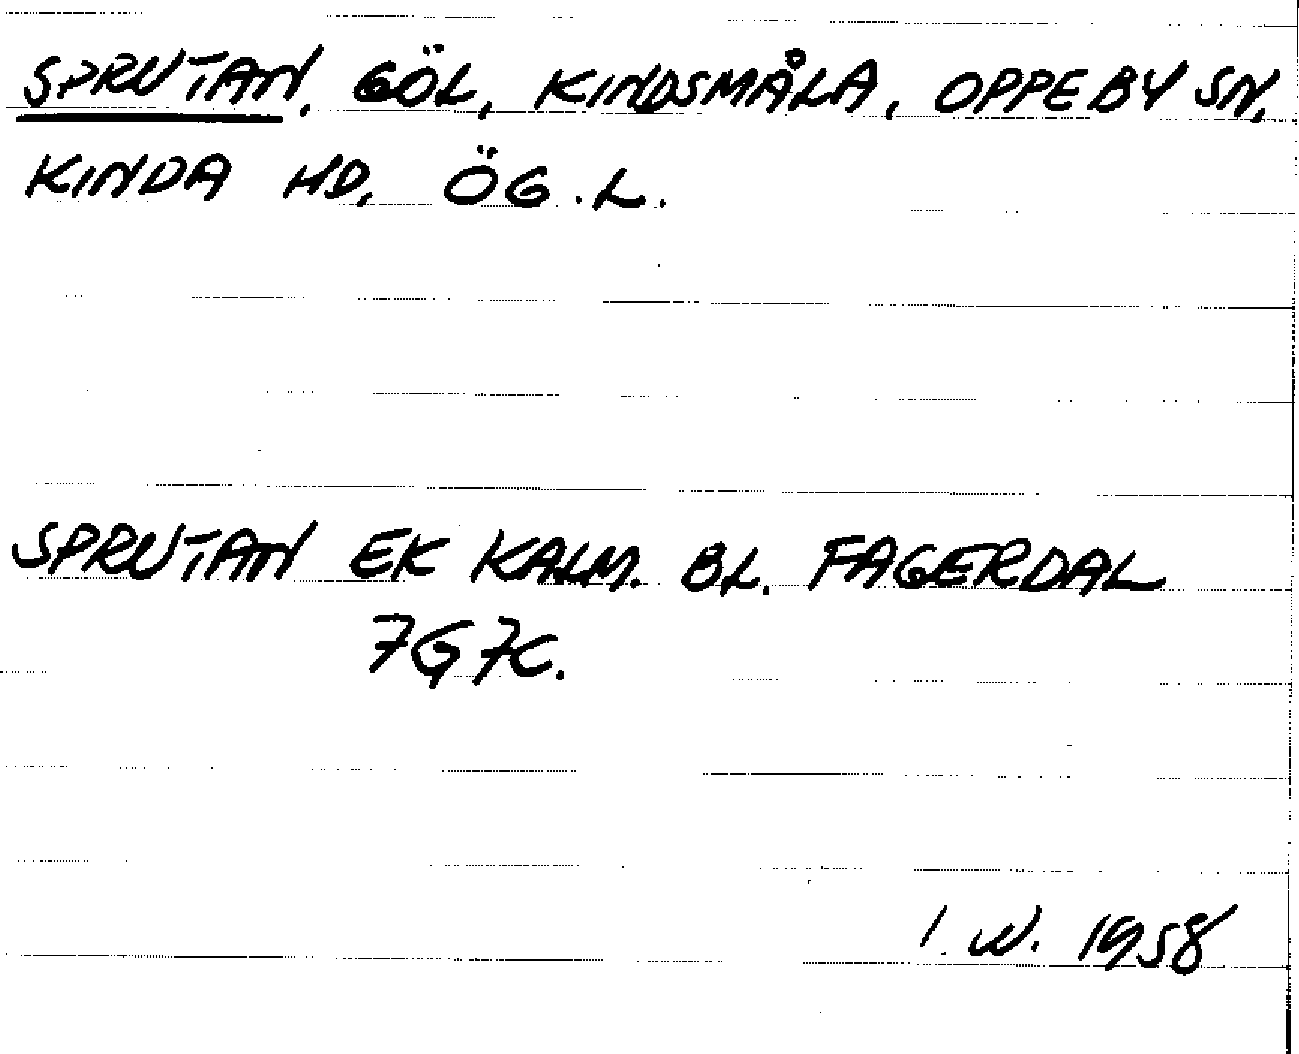 SPRUTAN, GÖL, KINDSMÅLA, OPPEBY SN,
KINDA HD, ÖG.L.
SPRUTAN EK KALM. BL. FAGERDAL
7G7C.
I.W. 1958